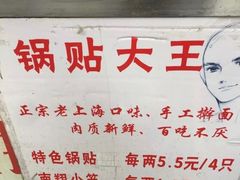 锅贴大王
正宗老上海口味、手工擀面
肉质新鲜、百吃不厌
特色锅贴 每两5.5元/4只
南翔小笼 每两